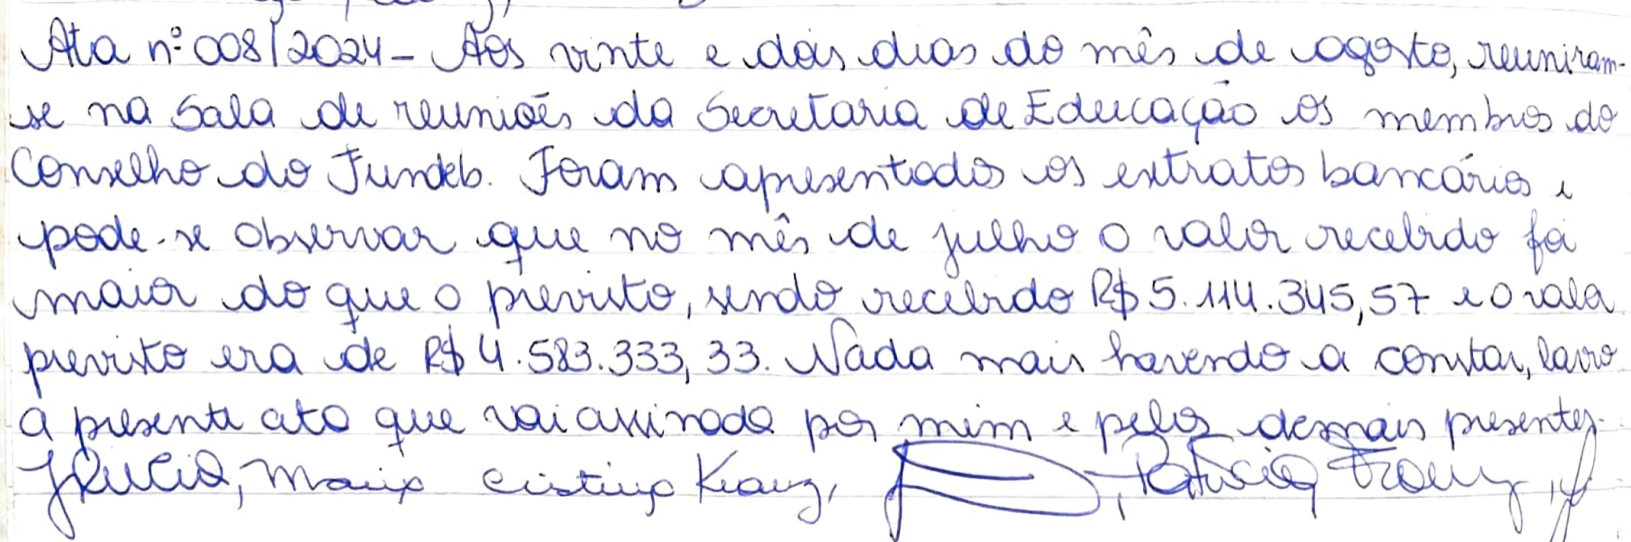 Ata nº 008/2024 - Aos vinte e dois dias do mês de agosto, reuniram-
se na sala de reuniões da Secretaria de Educação os membros do
Conselho do Fundeb. Foram apresentados os extratos bancários e
pode-se observar que no mês de julho o valor recebido foi
maior do que o previsto, sendo recebido R$ 5.114.345,57 e o valor
previsto era de R$ 4.583.333,33. Nada mais havendo a constar, lavro
a presente ata que vai assinada por mim e pelos demais presentes.
Maria Cristina